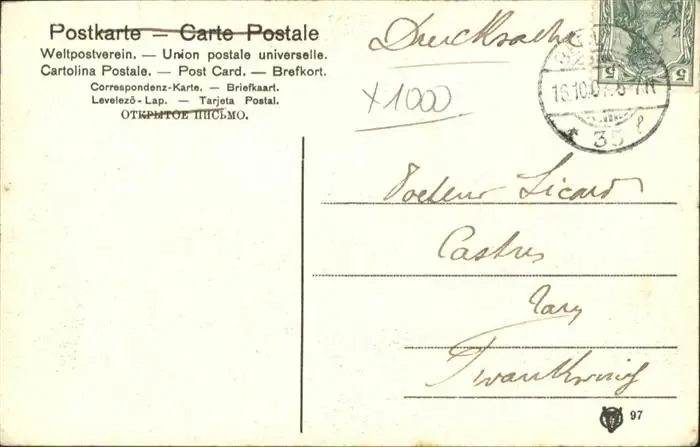 Postkarte — Carte Postale
Weltpostverein. — Union postale universelle.
Cartolina Postale. — Post Card. — Brefkort.
Correspondenz-Karte. — Briefkaart.
Levelező-Lap. — Tarjeta Postal.
ОТКРЫТОЕ ПИСЬМО.
Drucksache
X1000
5 5
16.10.07.
* 35 l
Docteur Sicard
Castres
Tarn
Frankreich
97